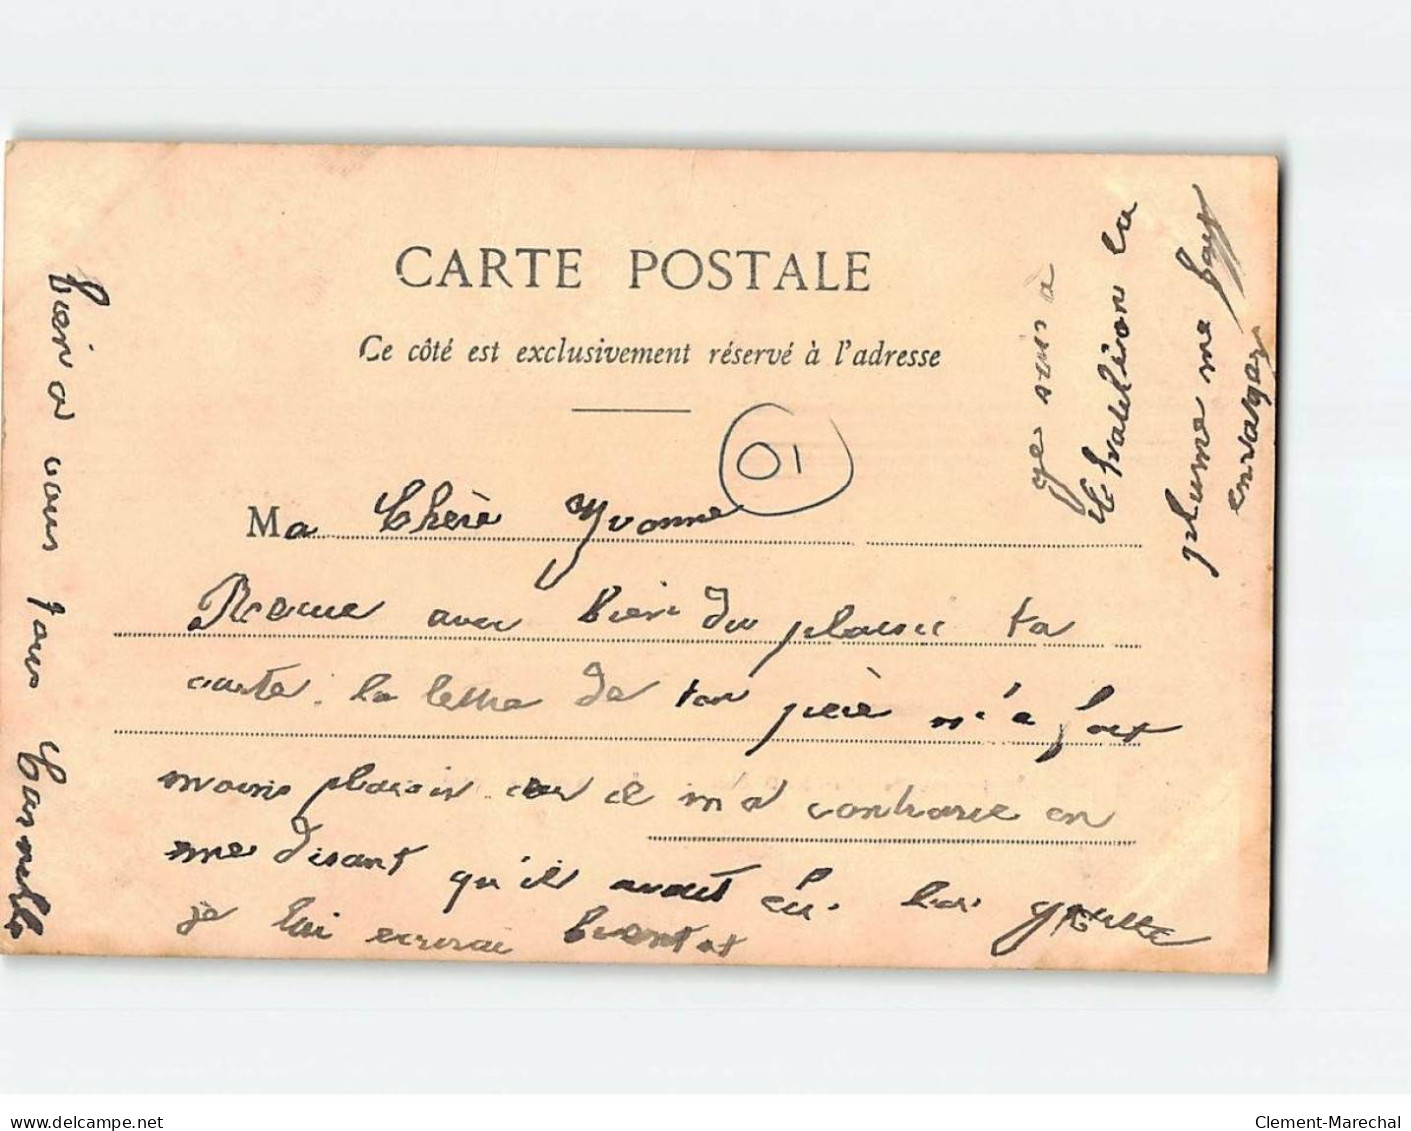 CARTE POSTALE
Ce côté est exclusivement réservé à l'adresse
01
Ma Chère Yvonne
Recue avec bien du plaisir ta
carte. la lettre de ton père m'a fait
moins plaisir car il m'a contrarie en
me disant qu'il avait eu la goutte
je lui ecrirai bientot
je suis à
la
plume me fait
enrager
bien a vous
www.delcampe.net
Clement-Marechal